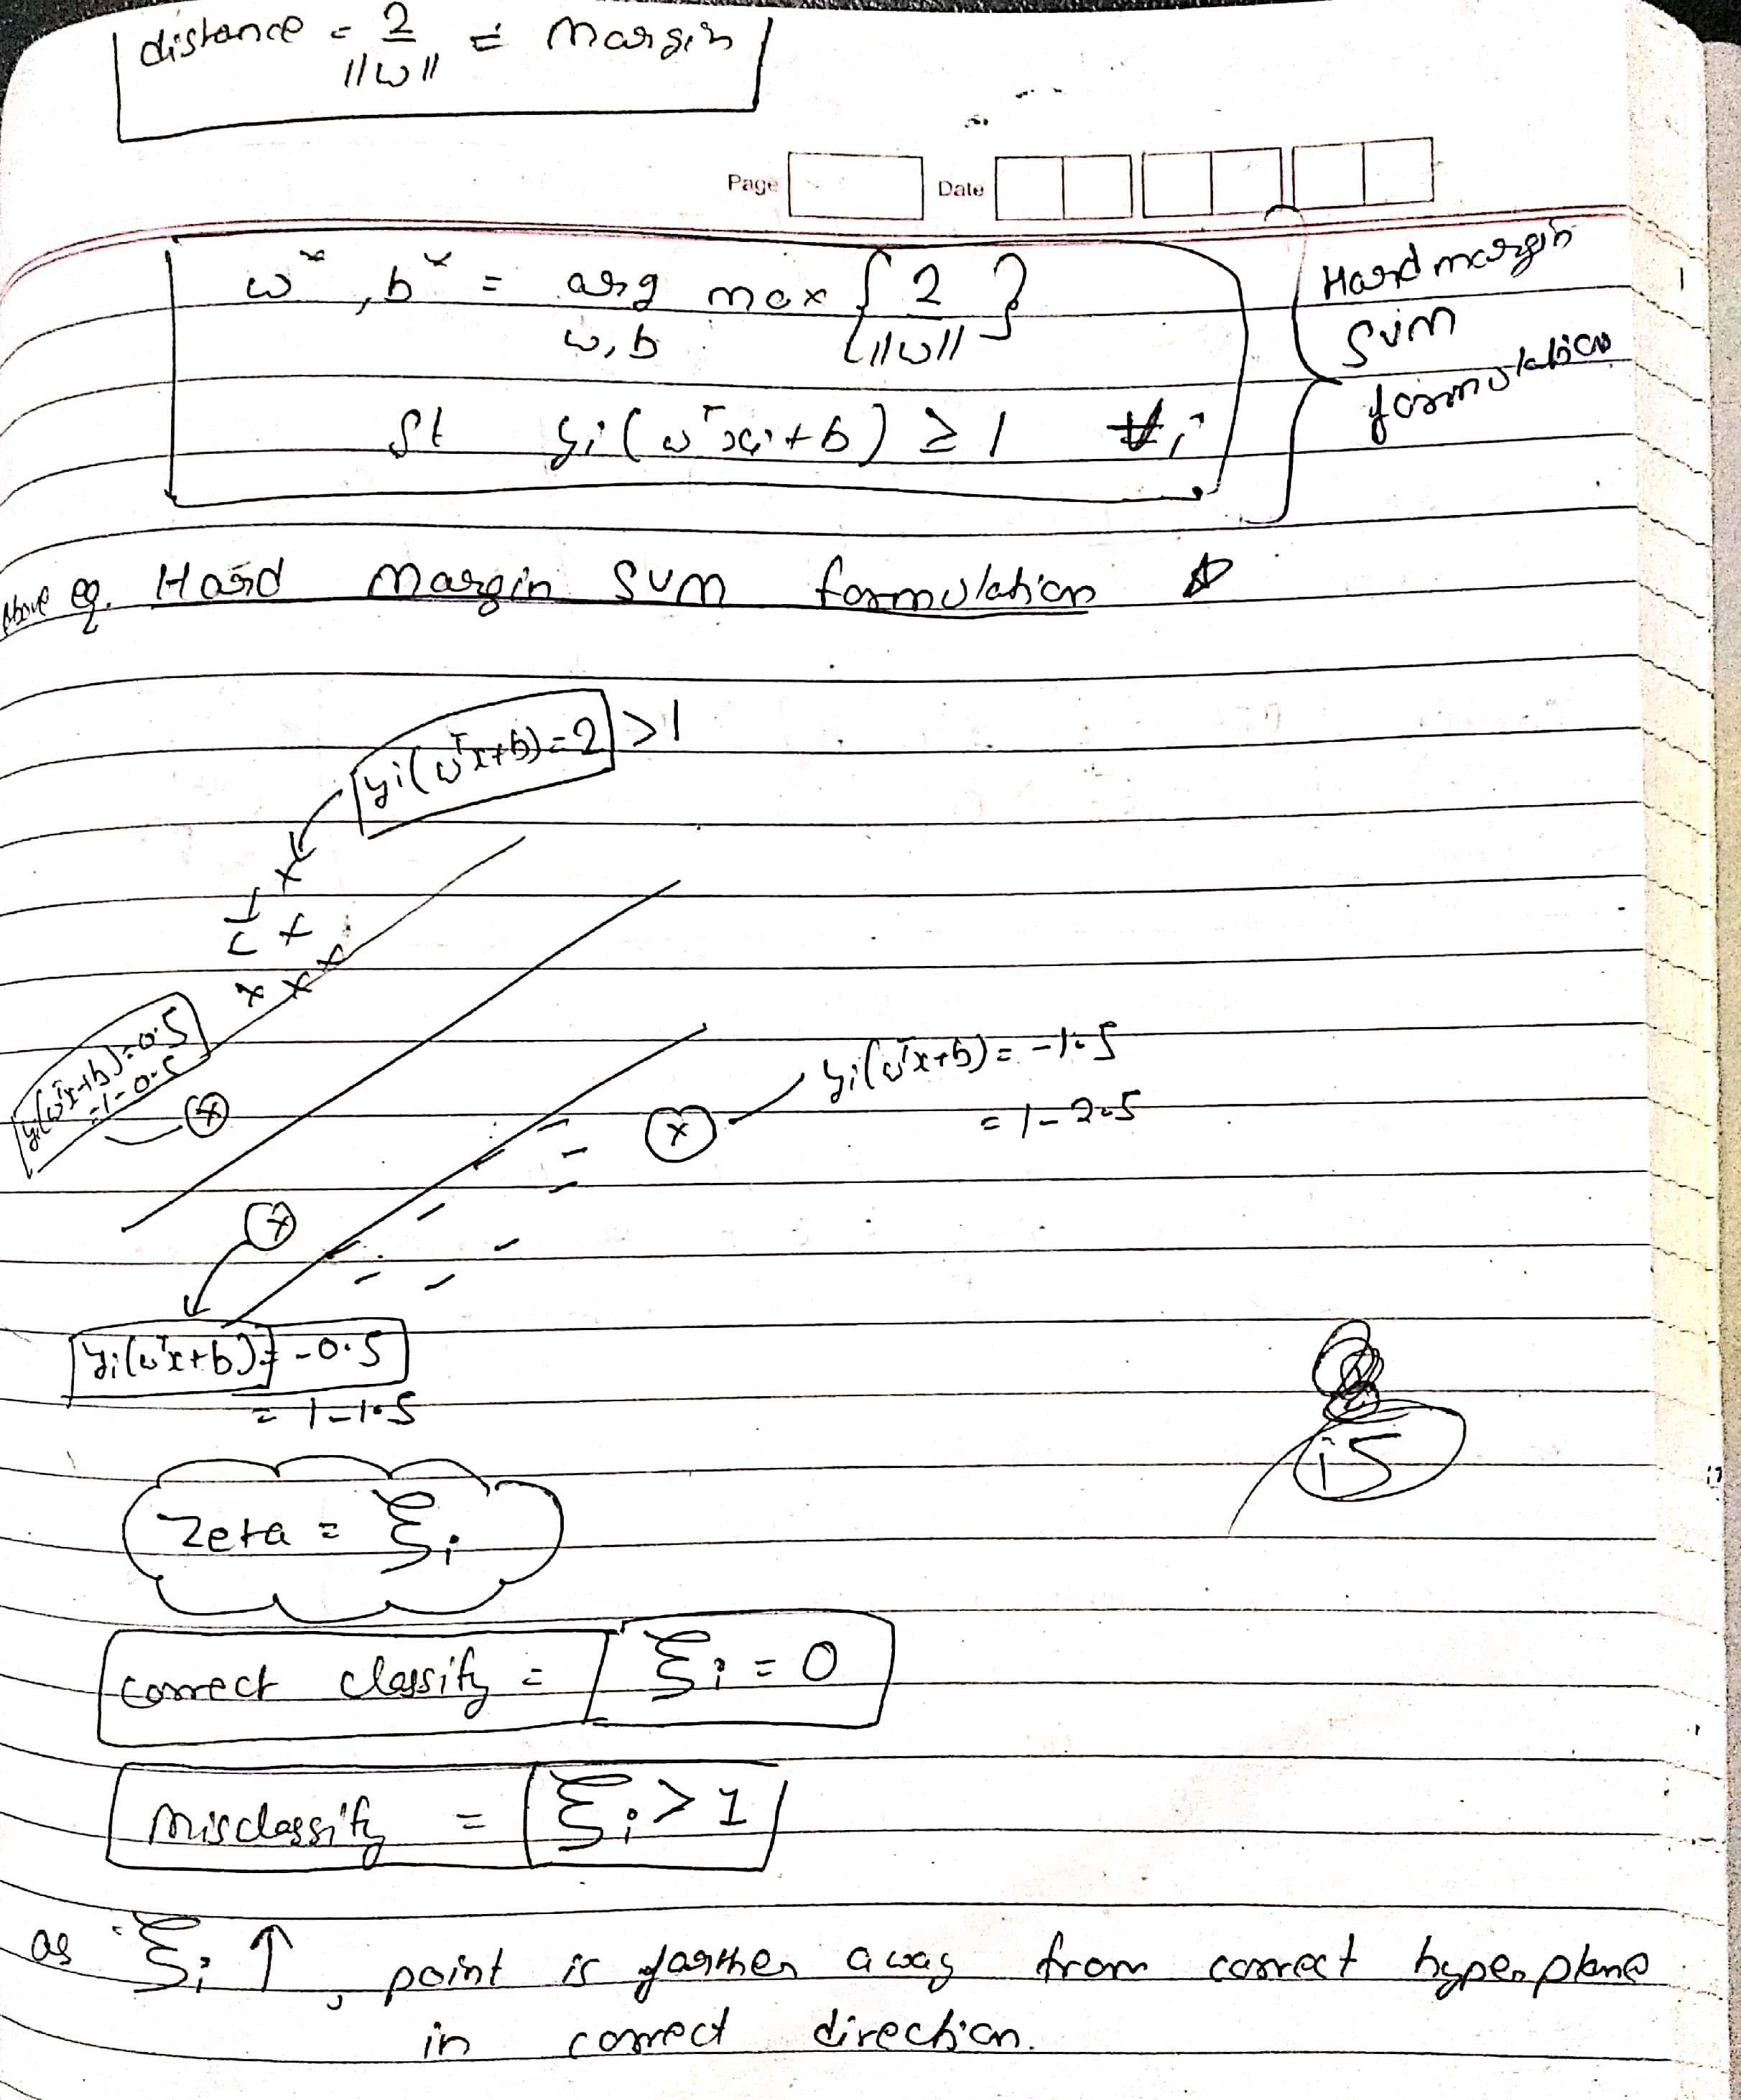 distance = 2/||w|| = margin
Page Date
w*, b* = arg max {2/||w||}
w, b
st yi(wᵀxi+b) ≥ 1 ∀i
Hard margin
SVM
formulation
Above eq. Hard Margin SVM formulation
yi(wᵀx+b)=2 > 1
yi(wᵀx+b)=0.5
=1-0.5
yi(wᵀx+b)= -1.5
= 1-2.5
yi(wᵀx+b)= -0.5
= 1-1.5
i5
Zeta = ξi
correct classify = ξi = 0
Misclassify = ξi > 1
as ξi ↑, point is farther away from correct hyperplane
in correct direction.